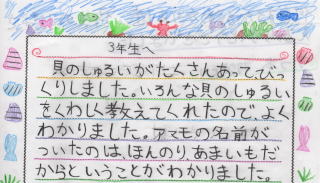 3年生へ
貝のしゅるいがたくさんあってびっ
くりしました。いろんな貝のしゅるい
をくわしく教えてくれたので、よく
わかりました。アマモの名前が
ついたのは、ほんのり、あまいもだ
からということがわかりました。